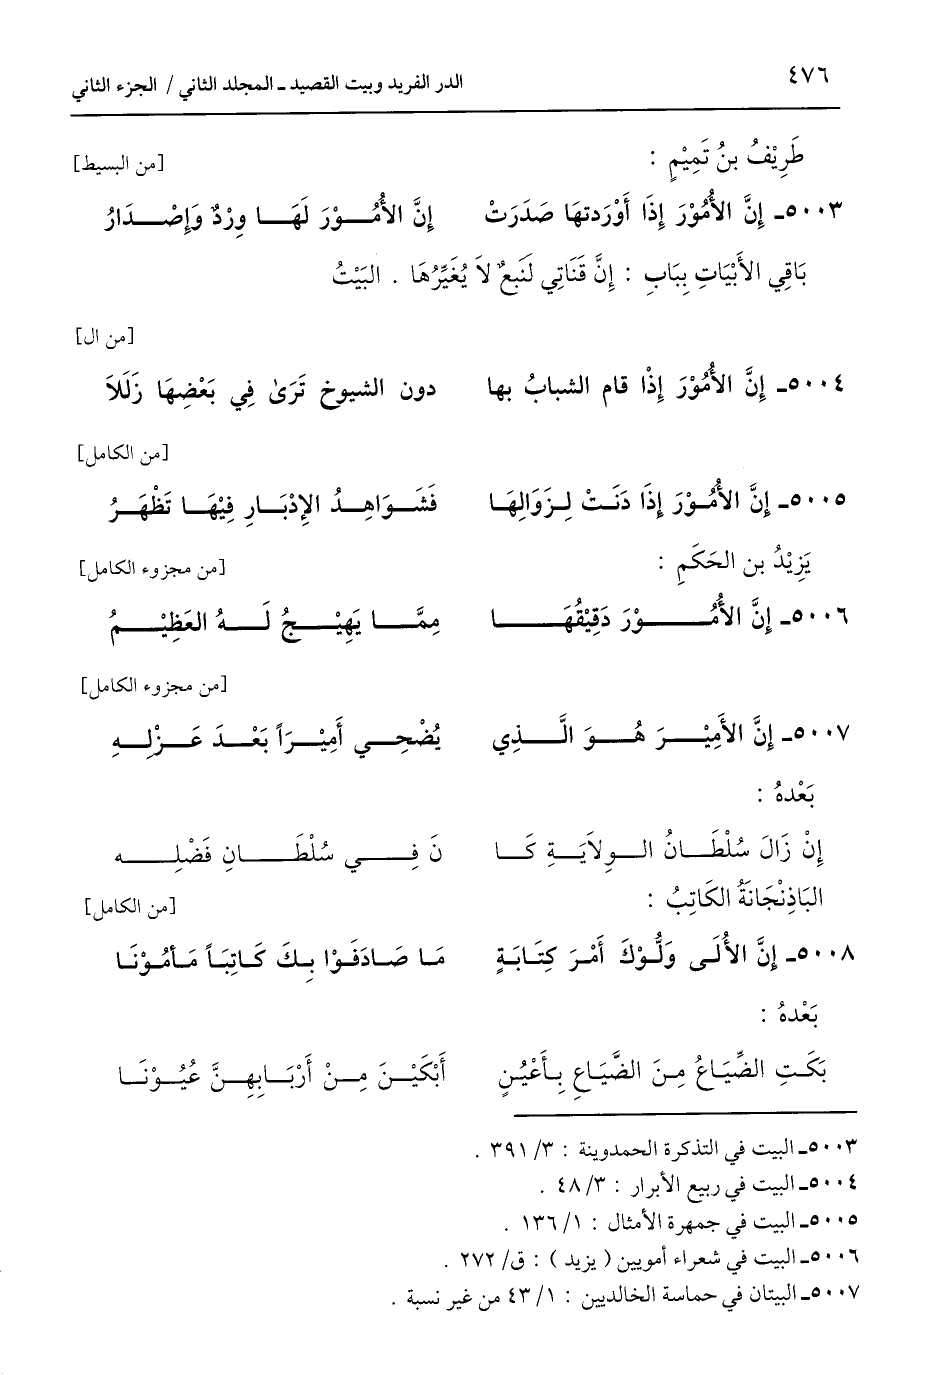 ٤٧٦ الدر الفريد وبيت القصيد ـ المجلد الثاني / الجزء الثاني
طَرِيْفُ بنُ تَمِيْمٍ : [من البسيط]
٥٠٠٣ـ إِنَّ الأُمُوْرَ إِذَا أَوْرَدتهَا صَدَرَتْ إِنَّ الأُمُوْرَ لَهَا وِرْدٌ وَإِصْدَارُ
بَاقِي الأَبْيَاتِ بِبَابِ : إِنَّ قَنَاتِي لَنَبعٌ لاَ يُغَيِّرُهَا . البَيْتُ
[من ال]
٥٠٠٤ـ إِنَّ الأُمُوْرَ إِذْا قام الشبابُ بها دون الشيوخ تَرَىٰ فِي بَعْضِهَا زَلَلاَ
[من الكامل]
٥٠٠٥ـ إِنَّ الأُمُوْرَ إِذَا دَنَتْ لِزَوَالِهَا فَشَوَاهِدُ الإِدْبَارِ فِيْهَا تَظْهَرُ
يَزِيْدُ بن الحَكَمِ : [من مجزوء الكامل]
٥٠٠٦ـ إِنَّ الأُمُوْرَ دَقِيْقُهَا مِمَّا يَهِيْجُ لَهُ العَظِيْمُ
[من مجزوء الكامل]
٥٠٠٧ـ إِنَّ الأَمِيْرَ هُوَ الَّذِي يُضْحِي أَمِيْرَاً بَعْدَ عَزْلِهِ
بَعْدهُ :
إِنْ زَالَ سُلْطَانُ الولاَيَةِ كَا نَ فِي سُلْطَانِ فَضْلِه
البَاذِنْجَانَةُ الكَاتِبُ : [من الكامل]
٥٠٠٨ـ إِنَّ الأُلَى وَلُّوْكَ أَمْرَ كِتَابَةٍ مَا صَادَفَوْا بِكَ كَاتِبَاً مَأمُوْنَا
بَعْدهُ :
بَكَتِ الضِّيَاعُ مِنَ الضَّيَاعِ بِأَعْيُنٍ أَبْكَيْنَ مِنْ أَرْبَابِهِنَّ عُيُوْنَا
٥٠٠٣ـ البيت في التذكرة الحمدوينة : ٣/ ٣٩١ .
٥٠٠٤ـ البيت في ربيع الأبرار : ٣/ ٤٨ .
٥٠٠٥ـ البيت في جمهرة الأمثال : ١/ ١٣٦ .
٥٠٠٦ـ البيت في شعراء أمويين ( يزيد ) : ق/ ٢٧٢ .
٥٠٠٧ـ البيتان في حماسة الخالديين : ١/ ٤٣ من غير نسبة .